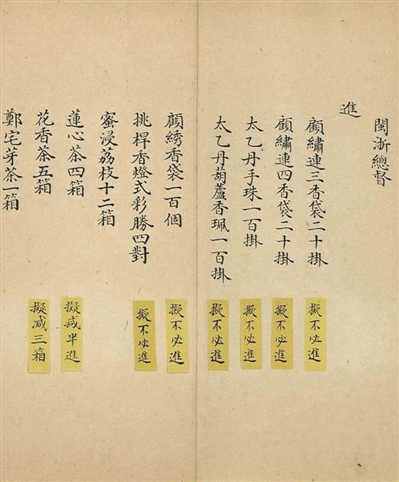 閩浙總督
進
顧繡連三香袋二十掛 擬不必進
顧繡連四香袋二十掛 擬不必進
太乙丹手珠一百掛 擬不必進
太乙丹葫蘆香珮一百掛 擬不必進
顧綉香袋一百個 擬不必進
挑桿香燈式彩勝四對 擬不必進
蜜浸荔枝十二箱
蓮心茶四箱 擬减半進
花香茶五箱 擬减三箱
鄭宅芽茶一箱